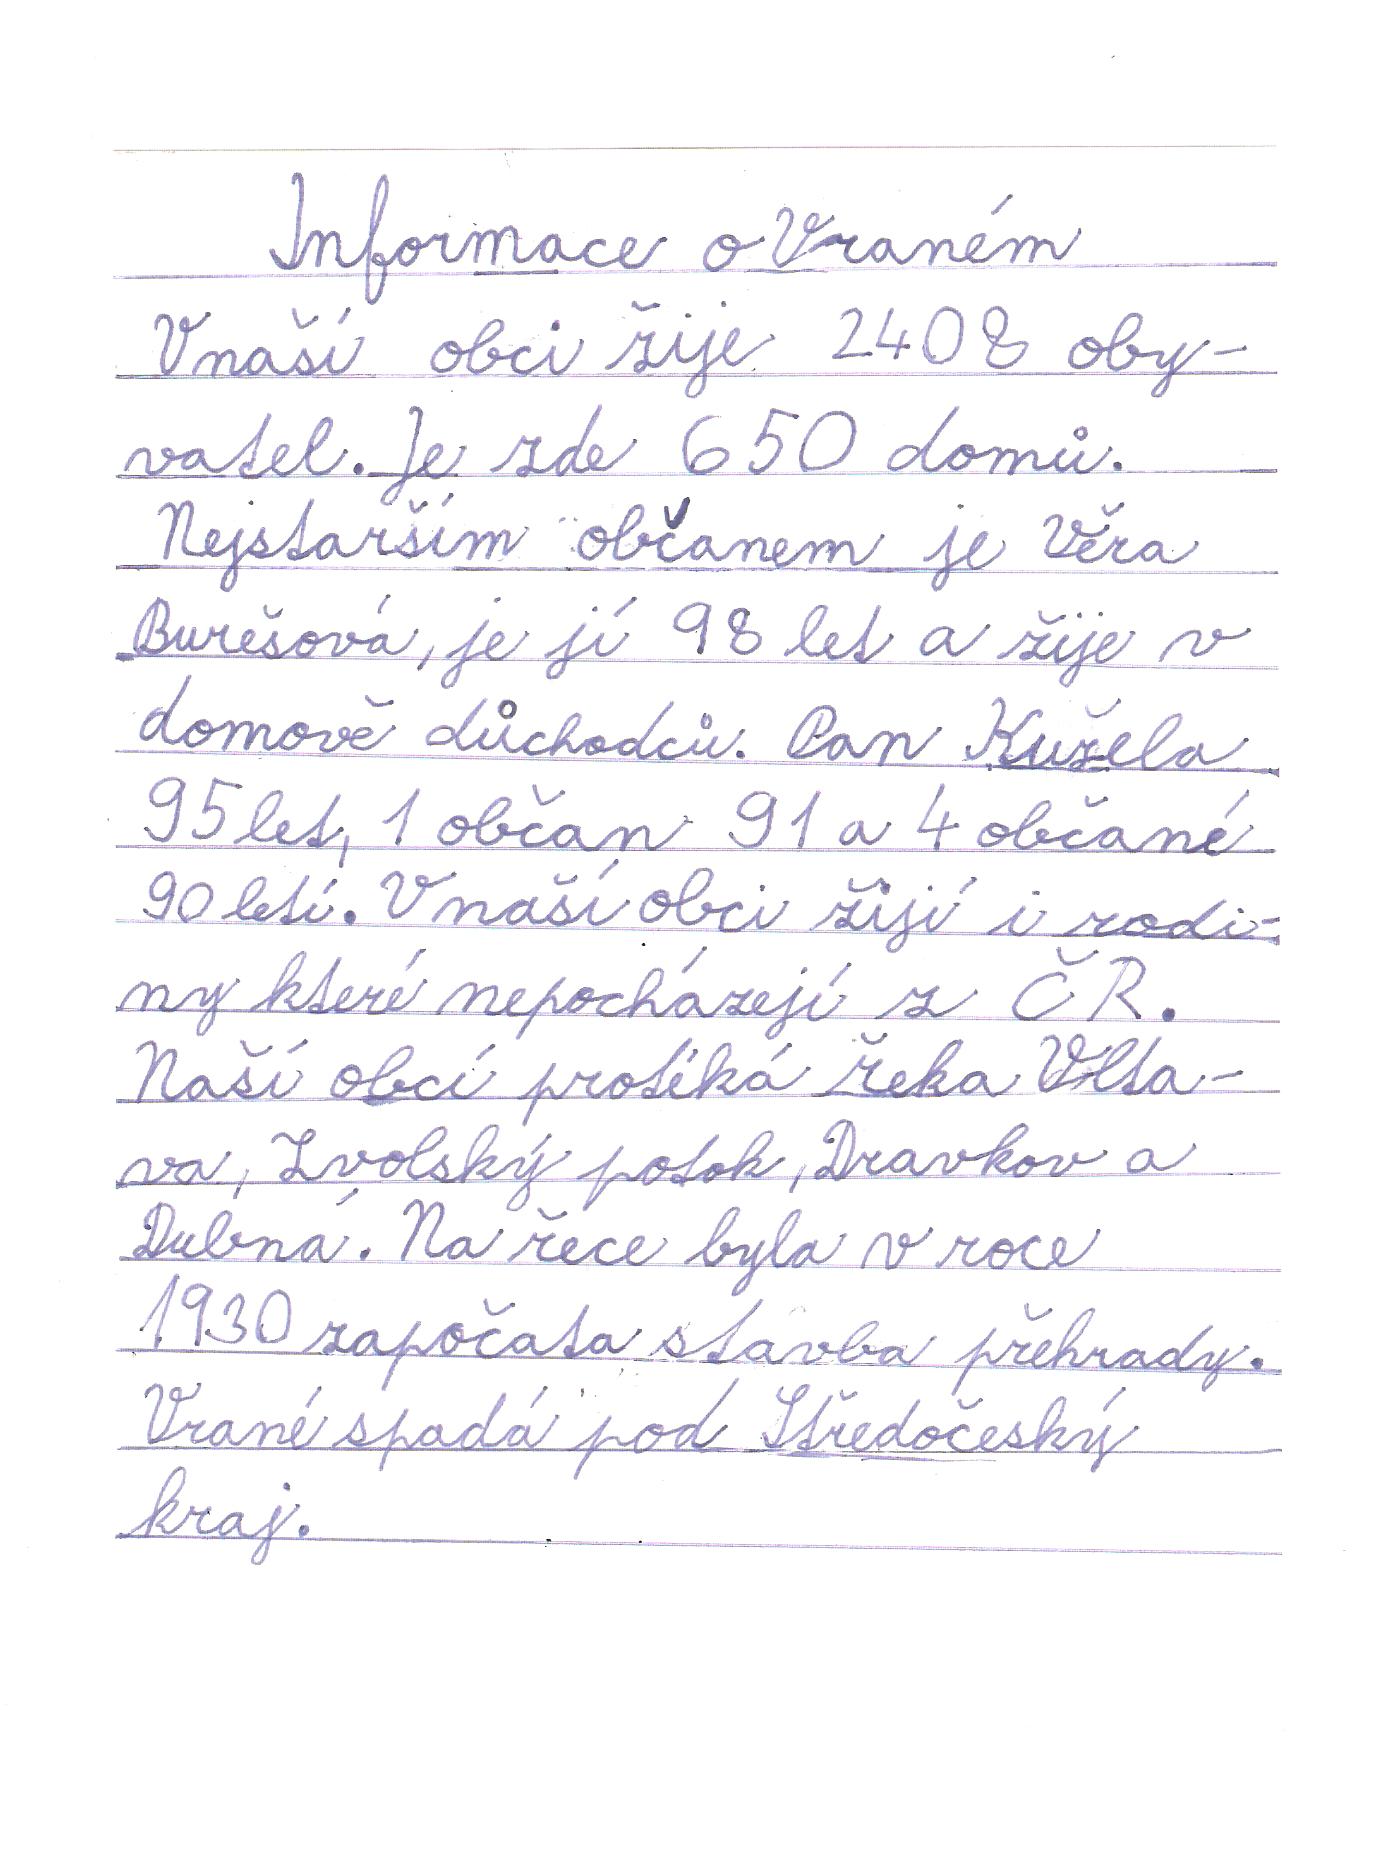 Informace o Vraném
V naší obci žije 2408 oby-
vatel. Je zde 650 domů.
Nejstarším občanem je Věra
Burešová, je jí 98 let a žije v
domově důchodců. Pan Kužela
95 let, 1 občan 91 a 4 občané
90 letí. V naší obci žijí i rodi-
ny které nepocházejí z ČR.
Naší obcí protéká řeka Vlta-
va, Zvolský potok, Dravkov a
Dubná. Na řece byla v roce
1930 započata stavba přehrady.
Vrané spadá pod Středočeský
kraj.